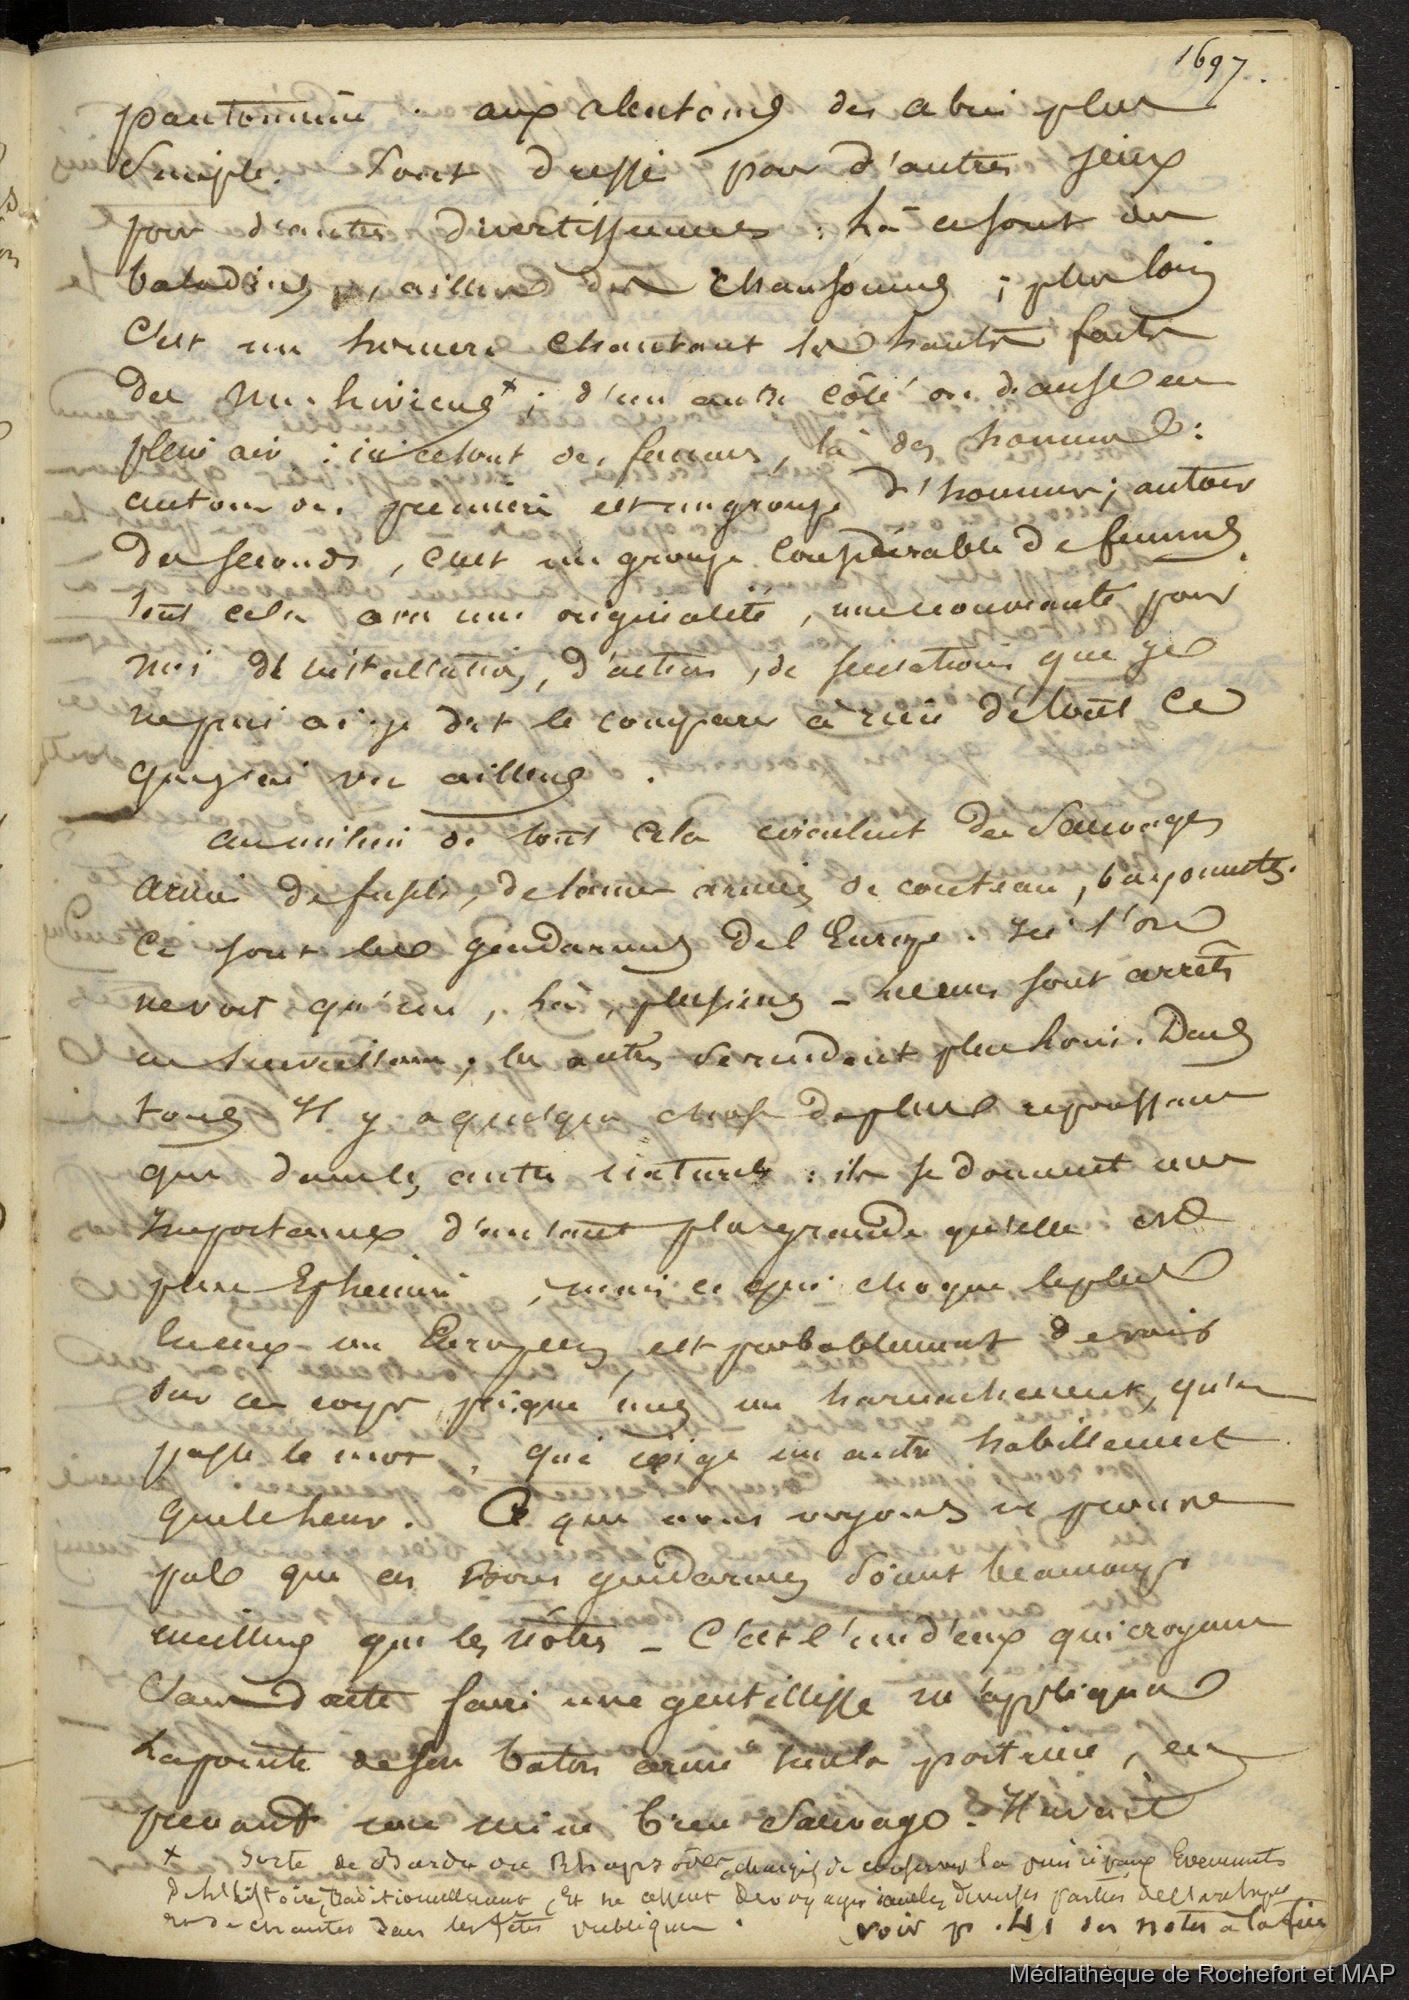 1697.
pantomime. aux alentours des abris plus
Simples Sont dressés pour d'autres jeux
pour d'autres divertissemens : là ce sont des
baladins, ailleurs des chansonniers ; plus loin
C'est un homere chantant les hauts faits
des nukhiviens x ; d'un autre côté on danse en
plein air : ici ce sont des femmes, là des hommes :
autour des premieres est un groupe d'hommes ; autour
des seconds, c'est un groupe considérable de femmes.
tout cela a une originalité, une nouveauté pour
moi d'installation, d'action, de sensations que je
ne puis ai-je dit le comparer à rien de tout ce
que j'ai vu ailleurs.
au milieu de tout cela circulent des Sauvages
armés de fusils, de lames armées de couteau, bayonnettes.
Ce sont les gendarmes de l'Europe. Ici l'on
ne voit qu'un, là, plusieurs - les uns sont arretés
en surveillance, les autres se rendent plus loin. Dans
tous Il y a quelque chose de plus repoussant
que dans les autres naturels : ils se donnent une
Importance d'autant plus grande qu'elle est
plus Ephémère, mais ce qui choque le plus
les yeux d'un Européen, est probablement de voir
sur ce corps presque nus un harnachement, qu'on
passe le mot, qui exige un autre habillement
que le leur. Ce que nous voyons ne prouve
pas que ces Bons gendarmes soient beaucoup
meilleurs que les nôtres - C'est l'un d'eux qui croyant
Sans doute faire une gentillesse m'appliqua
La pointe de son baton armé sur la poitrine, en
prenant une mine bien Sauvage. Il avait
x Sorte de Barde ou Rhapsodes, chargés de conserver les principaux Evenements
de l'histoire, traditionnellement, Et ne cessent de voyager dans les diverses parties de l'archipel
et de chanter dans les fêtes publiques. voir p. 41 des notes à la fin
Médiathèque de Rochefort et MAP